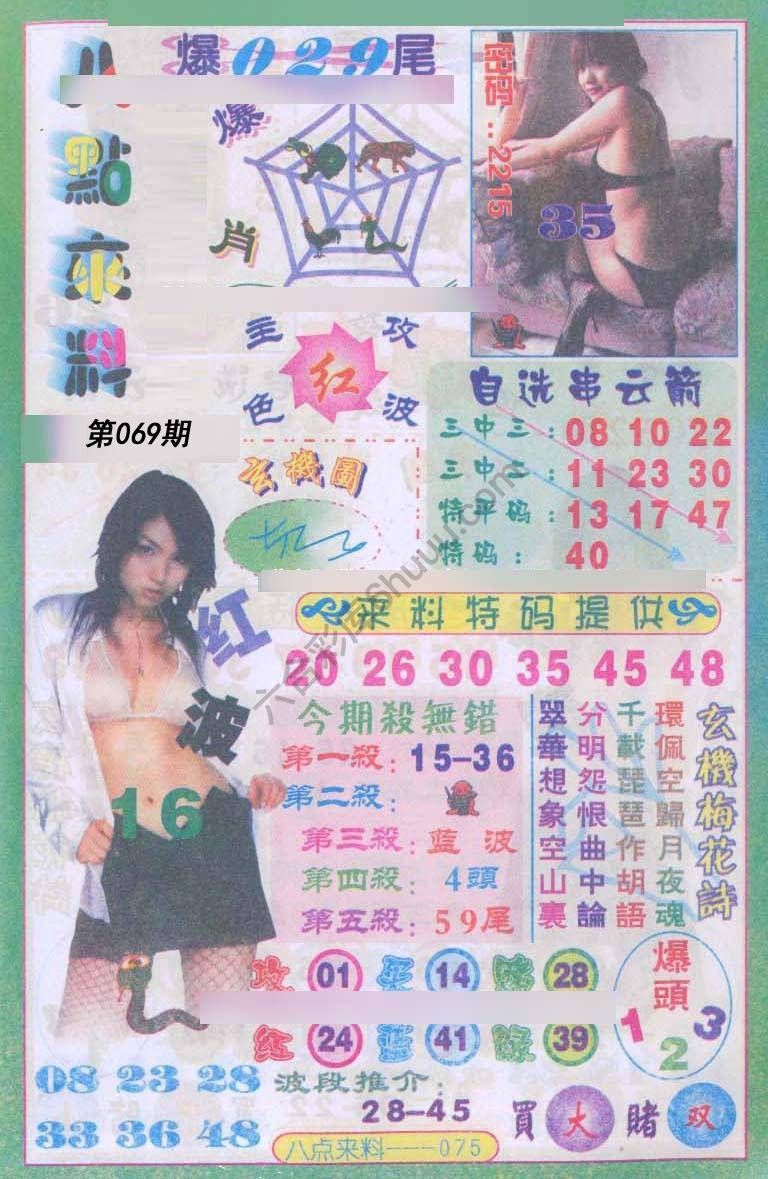 八點來料
爆029尾
爆肖
密码:2215
35
主攻
红
色波
第069期
玄機圖
自选串云箭
三中三:08 10 22
三中三:11 23 30
特平码:13 17 47
特码:40
来料特码提供
20 26 30 35 45 48
红波
16
今期殺無錯
第一殺:15-36
第二殺:
第三殺:藍波
第四殺:4頭
第五殺:59尾
玄機梅花詩
環佩空歸月夜魂
千載琵琶作胡語
分明怨恨曲中論
翠華想象空山裏
攻 01 14 28
红 24 蓝 41 緑 39
爆頭
1 2 3
08 23 28
33 36 48
波段推介:
28-45
買大賭双
八点来料---075